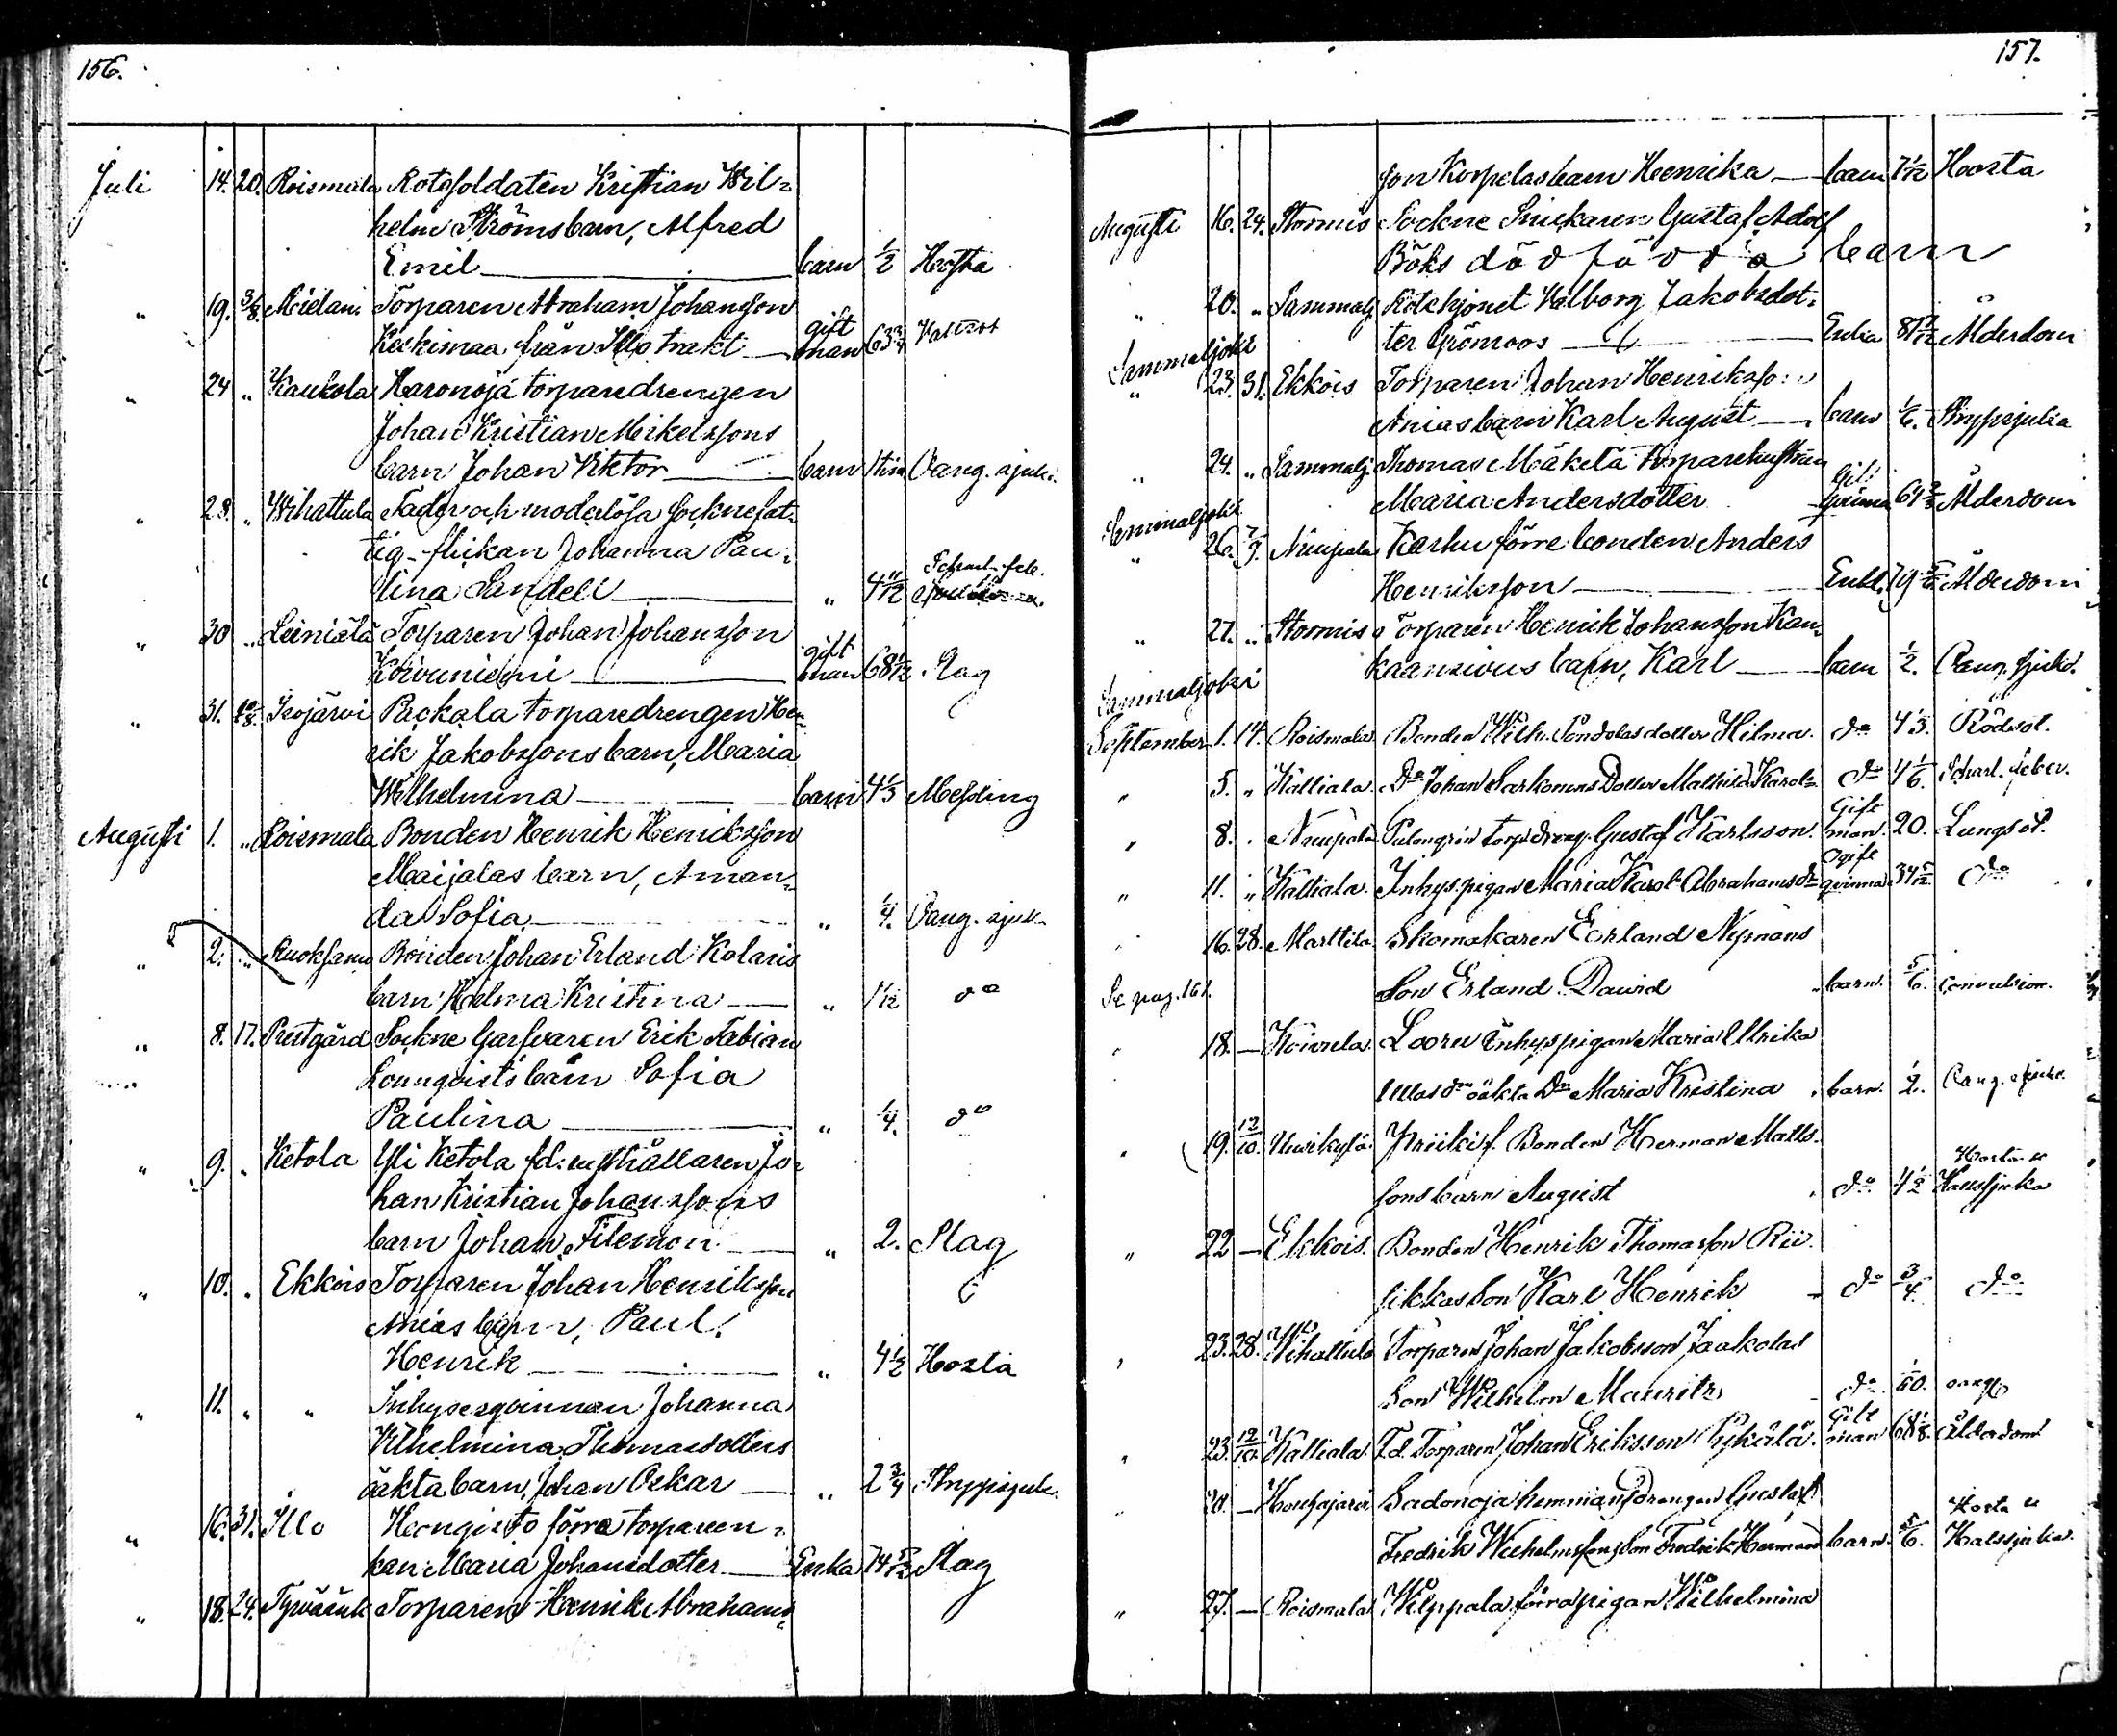 156.
Juli 14. 20. Roismala Rotesoldaten Kristian Wil=
helm Ströms barn, Alfred
Emil barn 1/2 Hosta
" 19. 3/8. Torparen Abraham Johansson
Keskimaa från Illo trakt gift man 63 3/4
" 24 " Kaukola Haronoja torparedrengen
Johan Kristian Mikelssons
barn Johan Viktor barn 1 tim Vang. sjukd.
" 28. " Wihattula Fader och moderlösa Sockne fat=
tig-flickan Johanna Pau=
lina Sandell " 4 11/12 Scharl. feb.
" 30 " Leiniälä Torparen Johan Johansson
Koivuniemi gift man 68 1/12 Slag
" 31. 10/8. Isojärvi Packala torparedrengen Hen=
rik Jakobssons barn, Maria
Wilhelmina barn 4 1/3 Messling
Augusti 1. " Roismala Bonden Henrik Henriksson
Maijalas barn, Aman=
da Sofia " 1/4. Vang. sjuk
" 2. " Bonden Johan Erland Kolaris
barn Halma Kristina " 1 1/12 do
" 8. 17. Prestgård Sockne Garfvaren Erik Fabian
Lounqvists barn Sofia
Paulina " 1/4. do
" 9. " Ketola Yli Ketola fd. rusthållaren Jo=
han Kristian Johanssons
barn Johan Filemon " 2. Slag
" 10. " Ekkois Torparen Johan Henriksson
Anias barn, Paul
Henrik " 4 1/2 Hosta
" 11. " " Inhysesqvinnan Johanna
Vilhelmina Thomasdotters
oäkta barn, Johan Oskar " 2 3/4 Strypsjuk.
" 16. 31. Illo Hongisto förra torparen=
kan Maria Johansdotter Enka 74 5/12 Slag
" 18. 24. Torparen Henrik Abrahams=
157.
son Korpelas barn Henrika barn 7 1/2 Hosta
Augusti 16. 24. Stormis Sockne Snickaren Gustaf Adolf
Böks död födda barn
" 20. " Sammalj. Rotehjonet Valborg Jakobsdot=
Sammaljoki ter Grönroos Enka 81 7/12 Ålderdom
" 23. 31. Ekkois Torparen Johan Henriksson
Anias barn Karl August barn 1/6. Strypsjuka
" 24. " Sammalj. Thomas Mäkelä torparehustrun
Sammaljoki Maria Andersdotter Gift qvinna 61 2/3 Ålderdom
" 26. 7/9. Nuupala Karhu förre bonden Anders
Henriksson Enkl. 79 Ålderdom
" 27. " Stormis Torparen Henrik Johansson Kan=
Sammaljoki kaansivus barn, Karl barn 1/2. Vang. sjukd.
September 1. 14. Roismala. Bonden Wilh. dotter Hilma. do 4 1/3. Rödsot.
" 5. " Kalliala. Do Johan Sarkonens Dotter Mathild Karol. do 4 1/6. Scharl. feber.
" 8. " Nuupala torp. dreng. Gustaf Karlsson. Gift man. 20. Lungsot.
" 11. " Kalliala. Inhys. pigan Maria Karol. Abrahamsdr Ogift qvinna 34 5/12 do
" 16. 28. Marttila. Skomakaren Erland Nymans
Se pag. 161. Son Erland David barn. 5/6. Convulsion.
" 18. — Koivula. Inhyspigan Maria Ulrika
oäkta Dr Maria Kristina barn. 1/2. Vang. sjukd.
" 19. 12/10. Uusikylä. Bonden Herman Matts
sons barn August do 4 1/2 Hosta o Halssjuka
" 22 — Ekkois. Bonden Henrik Thomasson Rii
sikkas son Karl Henrik do 3/4. do
" 23. 28. Wihattula Torparen Johan Jakobsson Jaakolas
Son Wilhelm Mauritz do
" 23. 12/10. Kalliala. F.d. Torparen Johan Eriksson Gift man 68 1/8. Ålderdom
" 20. — Houhajärvi. Sadonoja hemmansdrengen Gustaf
Fredrik Wilhelmssons son Fredrik Herman barn. 5/6. Hosta o Halssjuka.
" 27. — Roismala. Wilppala förra pigan Wilhelmina